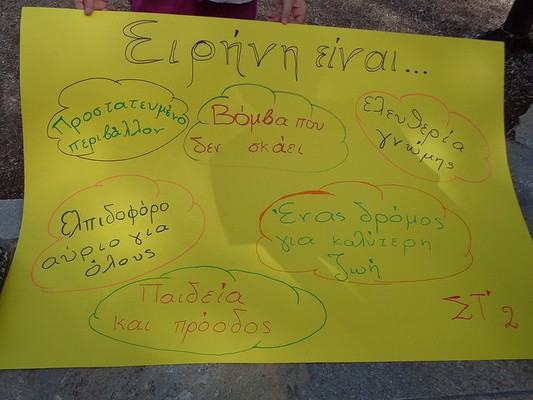 Ειρήνη είναι...
Προστατευμένο
περιβάλλον
Βόμβα που
δεν σκάει
Ελευθερία
γνώμης
Ελπιδοφόρο
αύριο για
όλους
Ένας δρόμος
για καλύτερη
ζωή
Παιδεία
και πρόοδος
ΣΤ' 2